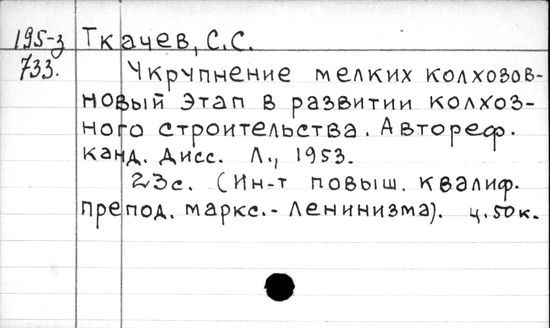 195-з Ткачев, С.С.
733. Укрупнение мелких колхозов-
новый этап в развитии колхоз-
ного строительства. Автореф.
канд. дисс. Л., 1953.
23с. (Ин-т повыш. квалиф.
препод. маркс.-ленинизма). ц.50к.